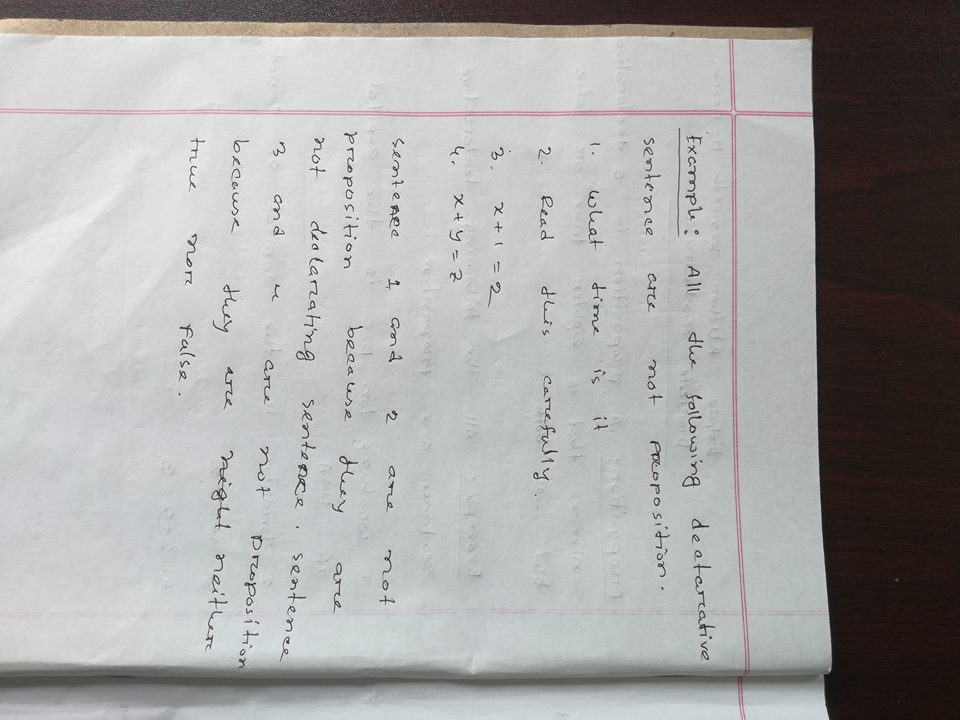 Example: All the following declarative
sentence are not proposition.
1. What time is it
2. Read this carefully.
3. x+1=2
4. x+y=z
sentence 1 and 2 are not
proposition because they are
not declarating sentence. sentence
3 and 4 are not proposition
because they are night neither
true nor False.